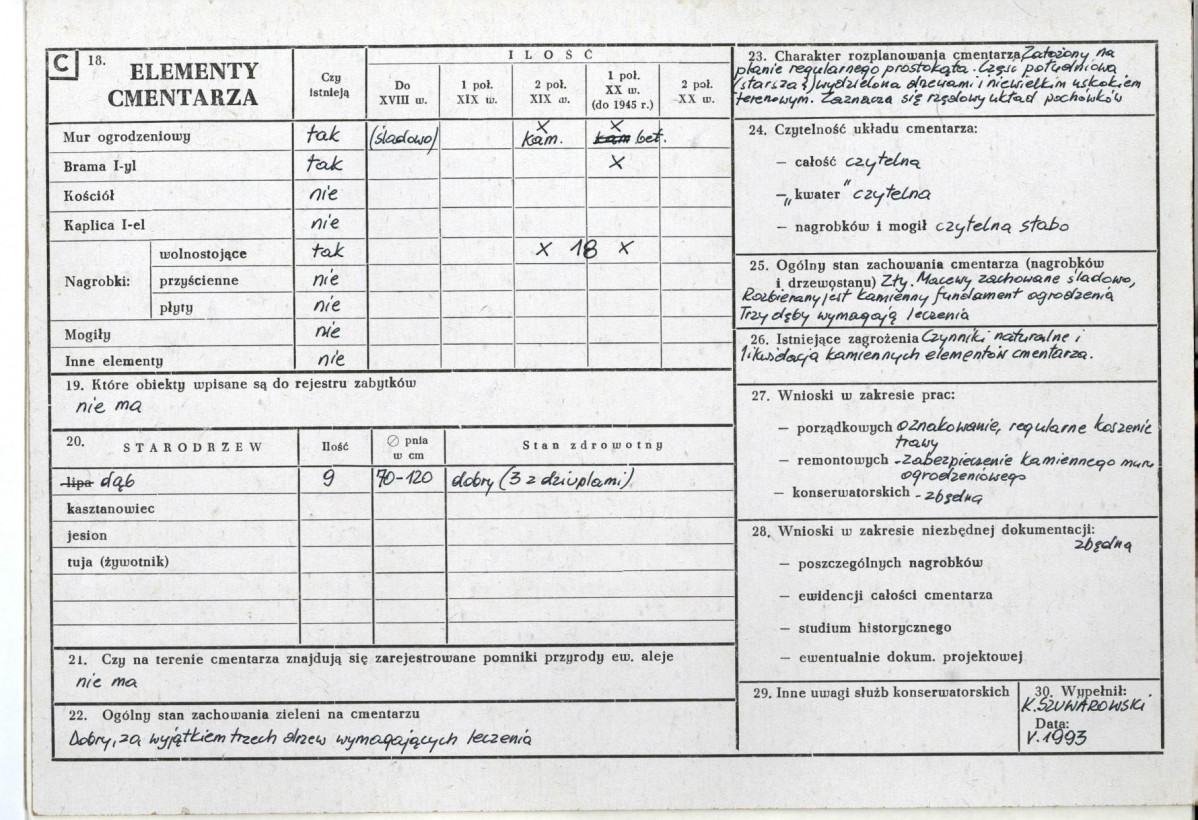 C 18. ELEMENTY CMENTARZA
Czy istnieją
I L O Ś Ć
Do XVIII w.
1 poł. XIX w.
2 poł. XIX w.
1 poł. XX w. (do 1945 r.)
2 poł. XX w.
Mur ogrodzeniowy tak (śladowo) x kam. x kam bet.
Brama I-yl tak x
Kościół nie
Kaplica I-el nie
Nagrobki:
wolnostojące tak x 18 x
przyścienne nie
płyty nie
Mogiły nie
Inne elementy nie
19. Które obiekty wpisane są do rejestru zabytków
nie ma
20. STARODRZEW Ilość ∅ pnia w cm Stan zdrowotny
lipa dąb 9 70-120 dobry (3 z dziuplami)
kasztanowiec
jesion
tuja (żywotnik)
21. Czy na terenie cmentarza znajdują się zarejestrowane pomniki przyrody ew. aleje
nie ma
22. Ogólny stan zachowania zieleni na cmentarzu
Dobry, za wyjątkiem trzech drzew wymagających leczenia
23. Charakter rozplanowania cmentarza Założony na
planie regularnego prostokąta. Część południowa
(starsza) wydzielona drzewami i niewielkim uskokiem
terenowym. Zaznacza się rzędowy układ pochówków
24. Czytelność układu cmentarza:
— całość czytelna
— „kwater" czytelna
— nagrobków i mogił czytelna słabo
25. Ogólny stan zachowania cmentarza (nagrobków
i drzewostanu) Zły. Macewy zachowane śladowo,
Rozbierany jest kamienny fundament ogrodzenia
Trzy dęby wymagają leczenia
26. Istniejące zagrożenia Czynniki naturalne i
likwidacja kamiennych elementów cmentarza.
27. Wnioski w zakresie prac:
— porządkowych oznakowanie, regularne koszenie
trawy
— remontowych - zabezpieczenie kamiennego muru
ogrodzeniowego
— konserwatorskich - zbędna
28. Wnioski w zakresie niezbędnej dokumentacji:
zbędna
— poszczególnych nagrobków
— ewidencji całości cmentarza
— studium historycznego
— ewentualnie dokum. projektowej
29. Inne uwagi służb konserwatorskich
30. Wypełnił:
K. SZUWAROWSKI
Data:
V. 1993